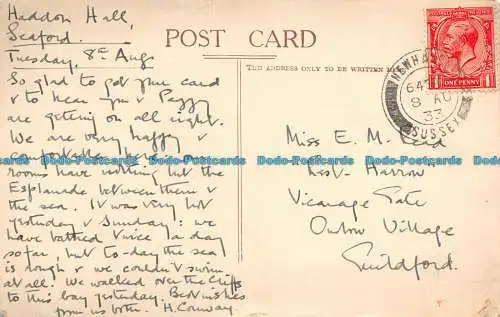 Haddon Hall,
Seaford.
Tuesday, 8th Aug
So glad to get your card
& to hear you & Peggy
are getting on all right.
We are very happy &
comfortable
rooms have nothing but the
Esplanade between them &
the sea. It was very hot
yesterday & Sunday: we
have bathed twice a day
so far, but to-day the sea
is rough & we couldn't swim
at all. We walked over the cliffs
to this bay yesterday. Best wishes
from us both. H. Conway.
POST CARD
THE ADDRESS ONLY TO BE WRITTEN
POSTAGE
ONE PENNY
NEWHA
647
8 AU
33
SUSSEX
Miss E. M. Reid
Harrow
Vicarage Gate
Onslow Village
Guildford.
Dodo-Postcards.com Dodo-Postcards.com Dodo-Postcards.com Dodo-Postcards.com